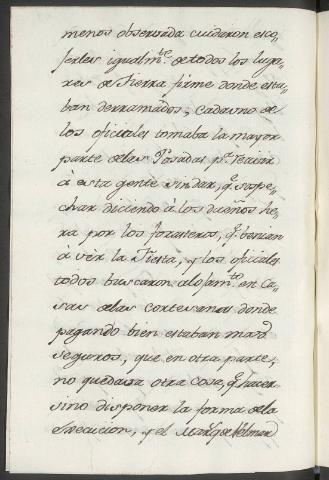 menos observada cuidaron esco-
ferles igualm.te de todos los luga-
res de Tierra firme donde esta-
ban derramados, cada uno de
los oficiales tomaba la mayor
parte de las Posadas p.a recivir
à esta gente sin dar, q.e sospe-
char diciendo à los dueños he-
ra por los forasteros, q.e benian
à vèr la Fiesta, y los oficiales
todos buscaron alojam.to en Ca-
sas de las cortesanas donde
pagando bien estaban mas
seguros, que en otra parte,
no quedava otra cosa, q.e hacer
sino disponer la forma de la
Execucion, y el